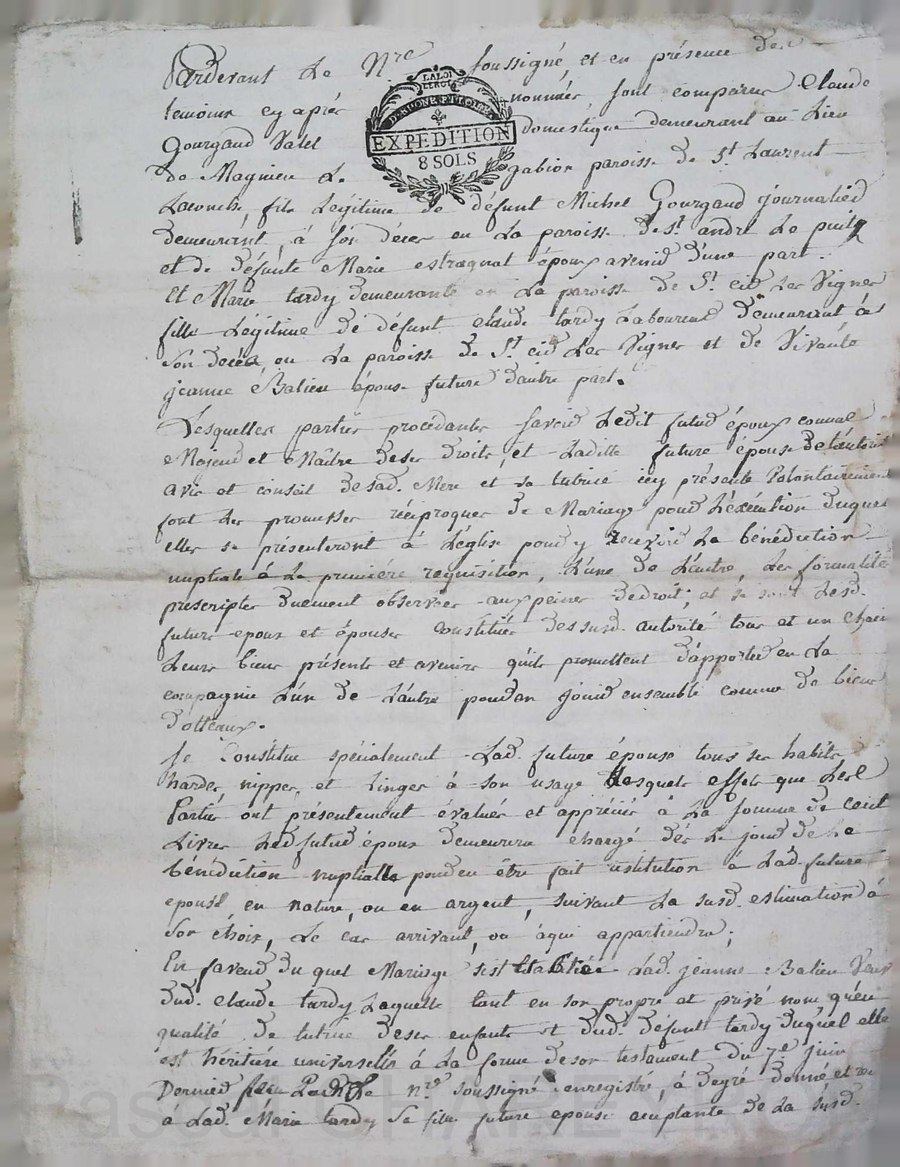 Pardevant Le Nre soussigné et en présence des
temoins cy après nommés, sont comparus Claude
Gourgaud Valet domestique demeurant au Lieu
de Magnieu Le gabion paroisse de St Laurent
Laconche, fils Légitime de défunt Michel Gourgaud journalier
demeurant, à son décès en La paroisse de St andré Le puits
et de défunte Marie estragnat époux avenir d'une part.
Et Marie tardy demeurante en La paroisse de St cir Les Vignes
fille Légitime de défunt claude tardy Laboureur demeurant à
son décès, en La paroisse de St cir Les Vignes et de Vivante
jeanne Balieu épouse future d'autre part.
Lesquelles parties procédantes savoir Ledit futur époux comme
Majeur et Maître de ses droits, et Ladite future épouse de L'autorité
avis et conseil de sad. Mere et sa tutrice icy présente Volontairement
font Les promesses réciproques de Mariage pour L'exécution duquel
elles se présenteront à L'église pour y recevoir La bénédiction
nuptiale à La première requisition, L'une de L'autre, Les formalités
prescriptes duement observées aux peines de droit; et se sont Lesd.
futurs epoux et épouse constitués des susd. autorité tous et un chacun
Leurs biens présents et avenirs qu'ils promettent d'apporter en La
compagnie L'un de L'autre pour en jouir ensemble comme de biens
dotteaux.
Se Constitue spécialement Lad. future épouse tous ses habits
hardes, nippes, et Linges à son usage Lesquels effets que Les
Parties ont présentement évalués et appréciés à La somme de cent
Livres Led. futur époux demeurera chargé dès Le jour de La
bénédiction nuptialle pour en être fait restitution à Lad. future
epouse en nature, ou en argent, suivant La susd. estimation à
son choix, Le cas arrivant, ou à qui appartiendra;
En faveur du quel Mariage s'est établie Lad. jeanne Balieu Veuve
dud. claude tardy Laquelle tant en son propre et privé nom qu'en
qualité de tutrice de ses enfants et dud. défunt tardy duquel elle
est héritière universelle à La forme de son testament du 7e juin
Dernier reçu Le nre soussigné enregistré, à degré donné et
à Lad. Marie tardy sa fille future epouse acceptante de La susd.
LA LOI
LE ROI
DE RHONE ET LOIRE
EXPEDITION
8 SOLS